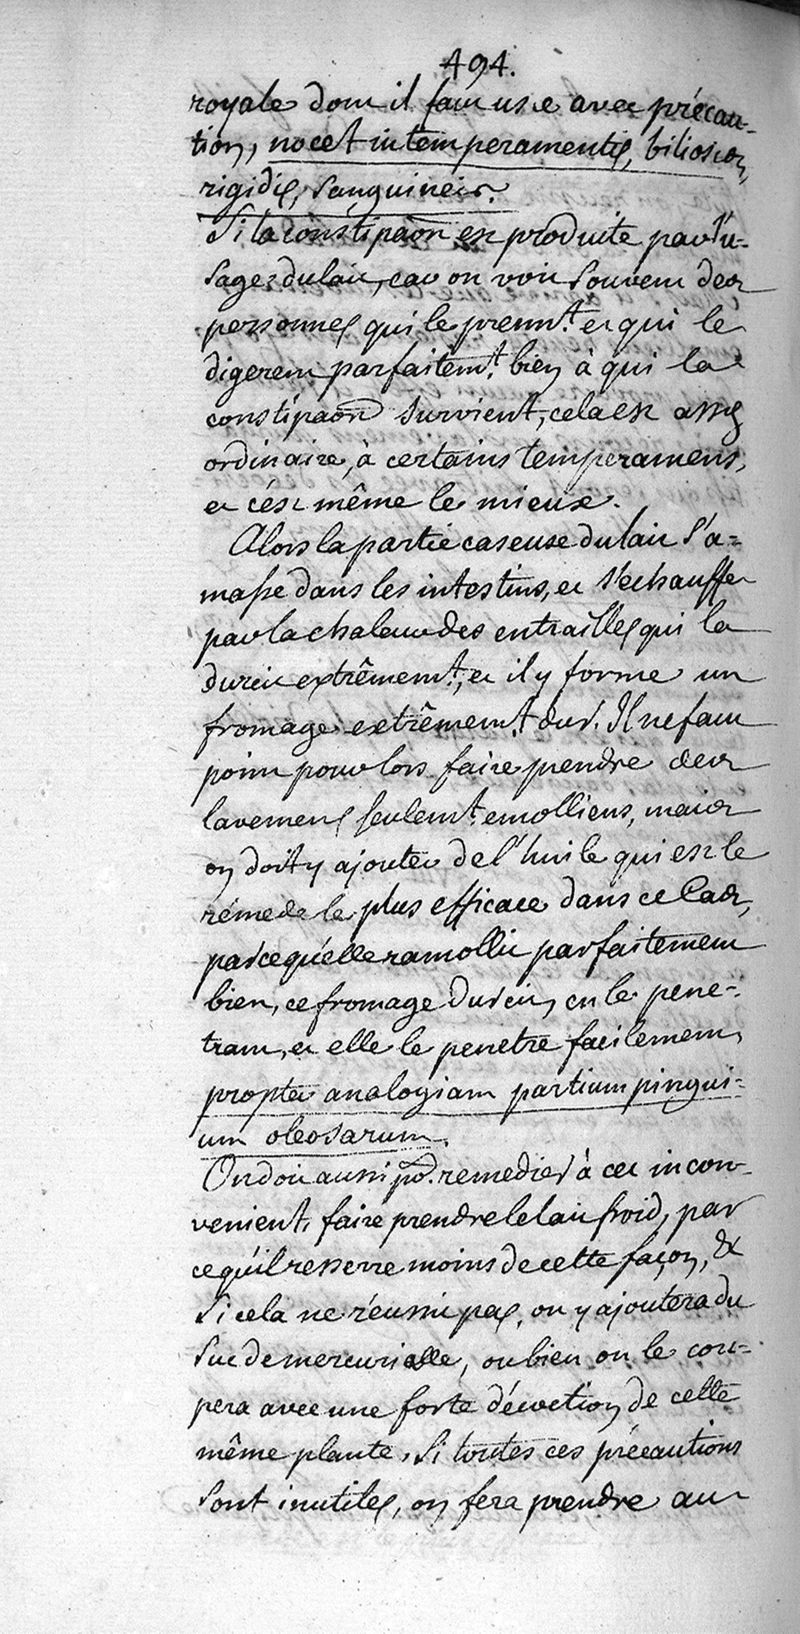 494.
royale dont il faut use avec précau-
tion, nocet intemperamentis, biliosis,
rigidis, sanguineis.
Si la constipaõn est produite par l'u-
sage du lait, car on voit souvent des
personnes qui le prennt. et qui le
digerent parfaitemt. bien à qui la
constipaõn survient, cela est assés
ordinaire, à certains temperamens,
et c'est même le mieux.
Alors la partie caseuse du lait s'a-
masse dans les intestins, et s'echauffe
par la chaleur des entrailles qui la
durcit extrêmemt., et il y forme un
fromage extrêmemt. dur. Il ne faut
point pour lors faire prendre des
lavemens seulemt. emolliens, mais
on doit y ajouter de l'huile qui est le
réméde le plus efficace dans ce Cas,
parcequ'elle ramollit parfaitement
bien, ce fromage durcit, en le pene-
trant, et elle le penetre facilement,
propter analogiam partium pingui-
um oleosarum.
On doit aussi pr. remedier à cet incon-
venient, faire prendre le lait froid, par
cequ'il resserre moins de cette façon, &
si cela ne réussit pas, on y ajoutera du
suc de mercurielle, ou bien on le cou-
pera avec une forte décoction de cette
même plante. Si toutes ces précautions
sont inutiles, on fera prendre au